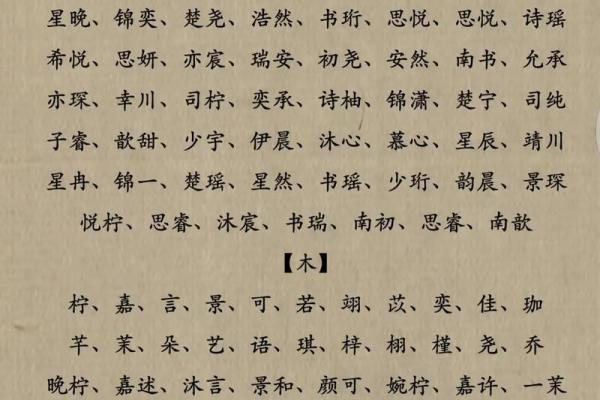 星晚、锦奕、楚尧、浩然、书珩、思悦、思悦、诗瑶
希悦、思妍、亦宸、瑞安、初尧、安然、南书、允承
亦琛、幸川、司柠、奕承、诗柚、锦潇、楚宁、司纯
子睿、歆甜、少宇、伊晨、沐心、慕心、星辰、靖川
星冉、锦一、楚瑶、星然、书瑶、少珩、韵晨、景琛
悦柠、思睿、沐宸、书瑞、南初、思睿、南歆
【木】
柠、嘉、言、景、可、若、翊、苡、奕、佳、珈
芊、茉、朵、艺、语、琪、梓、栩、槿、尧、乔
晚柠、嘉述、沐言、景和、颜可、婉柠、嘉许、一茉